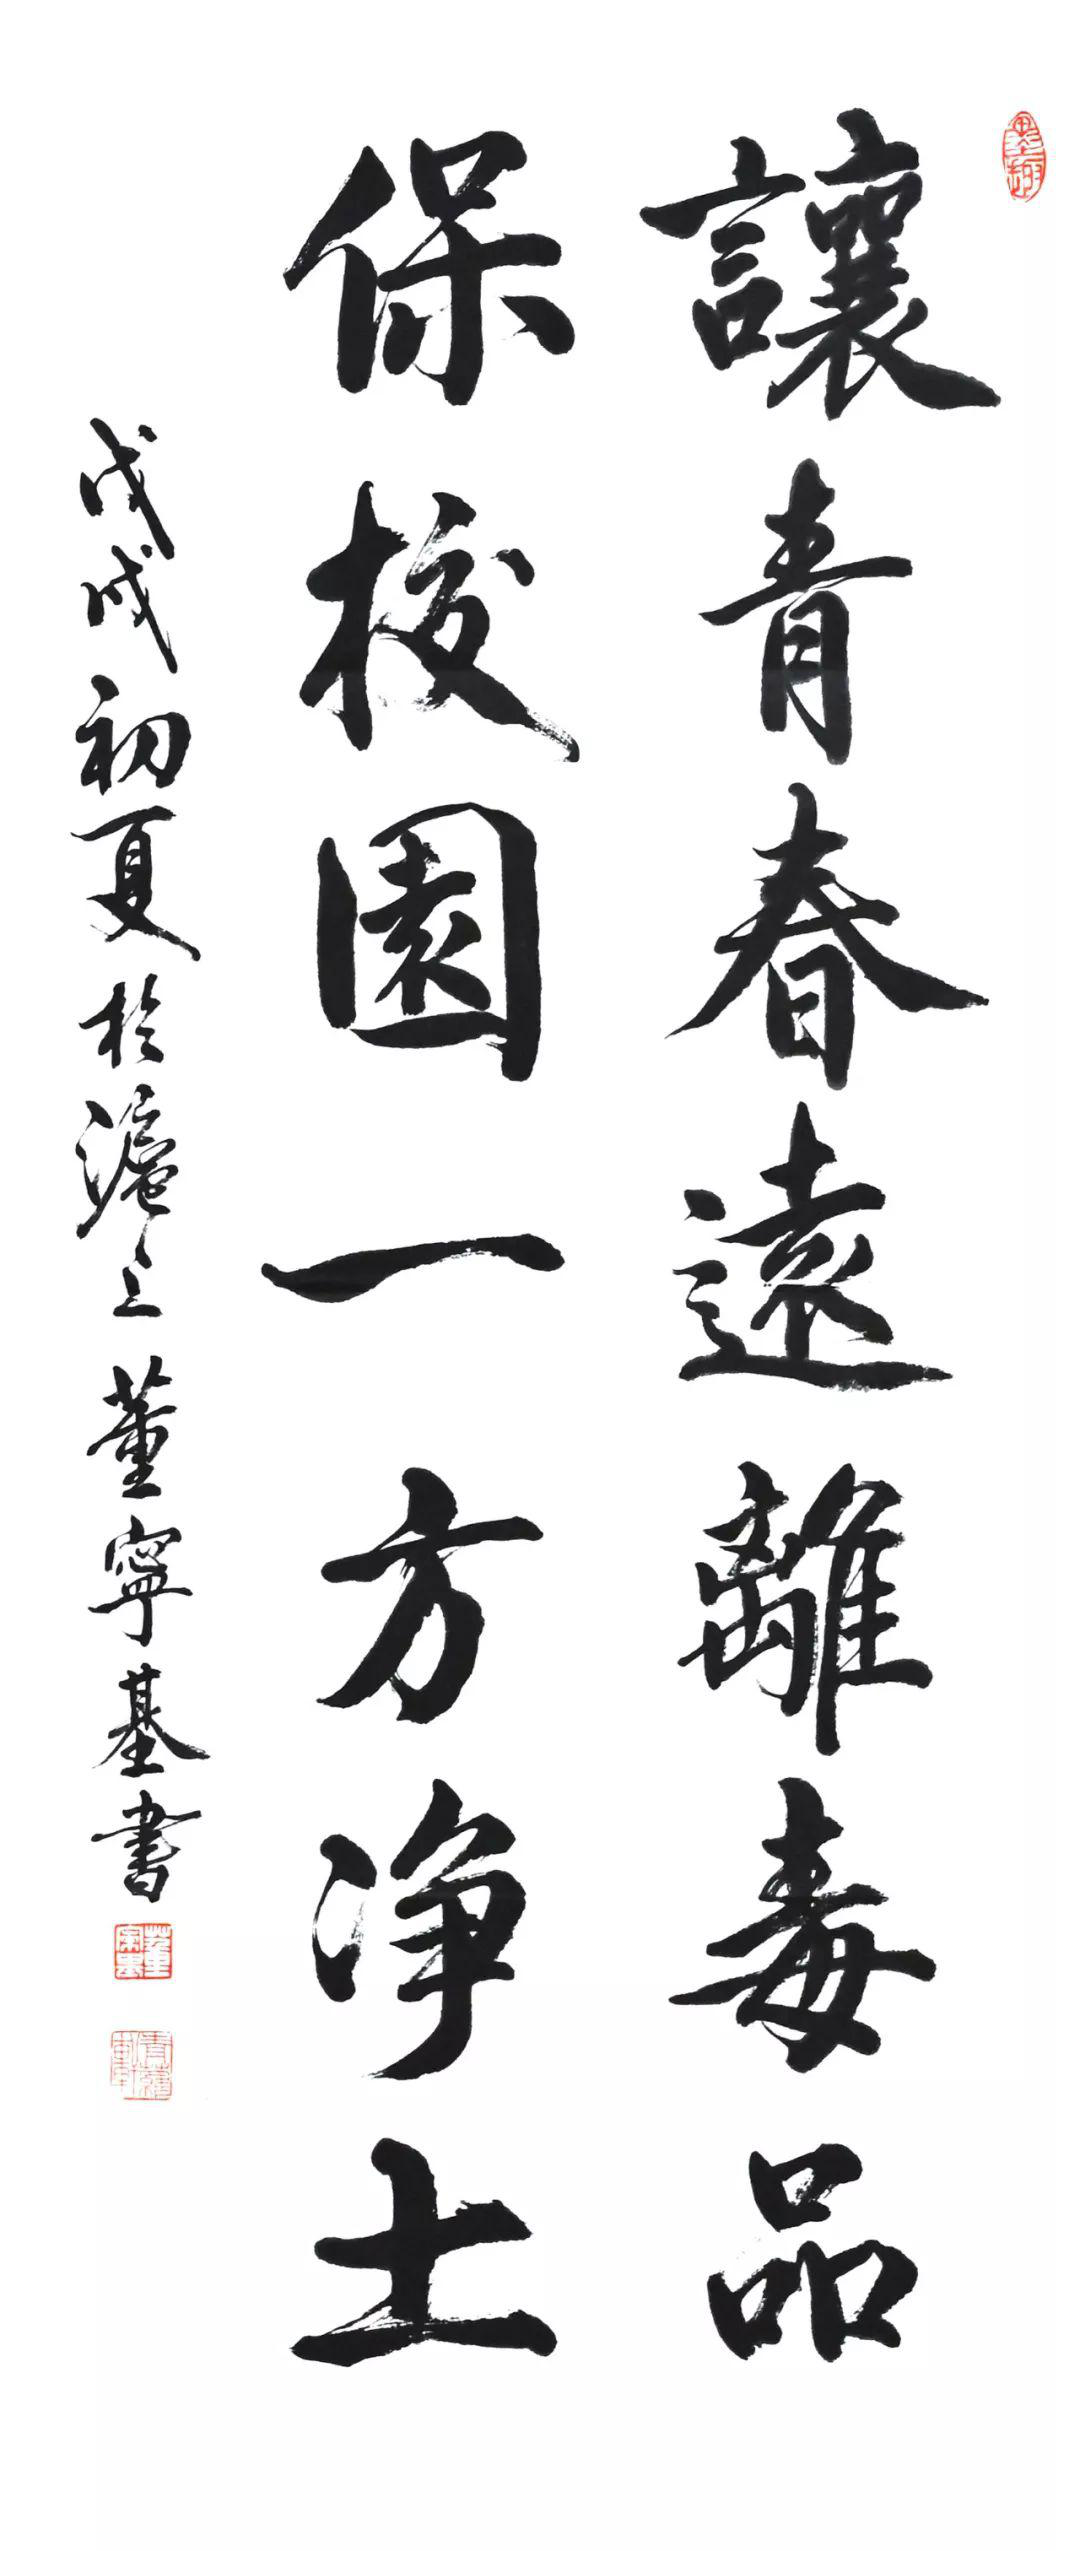 讓青春遠離毒品
保校園一方净土
戊戌初夏於滬上董寧基書
墨趣